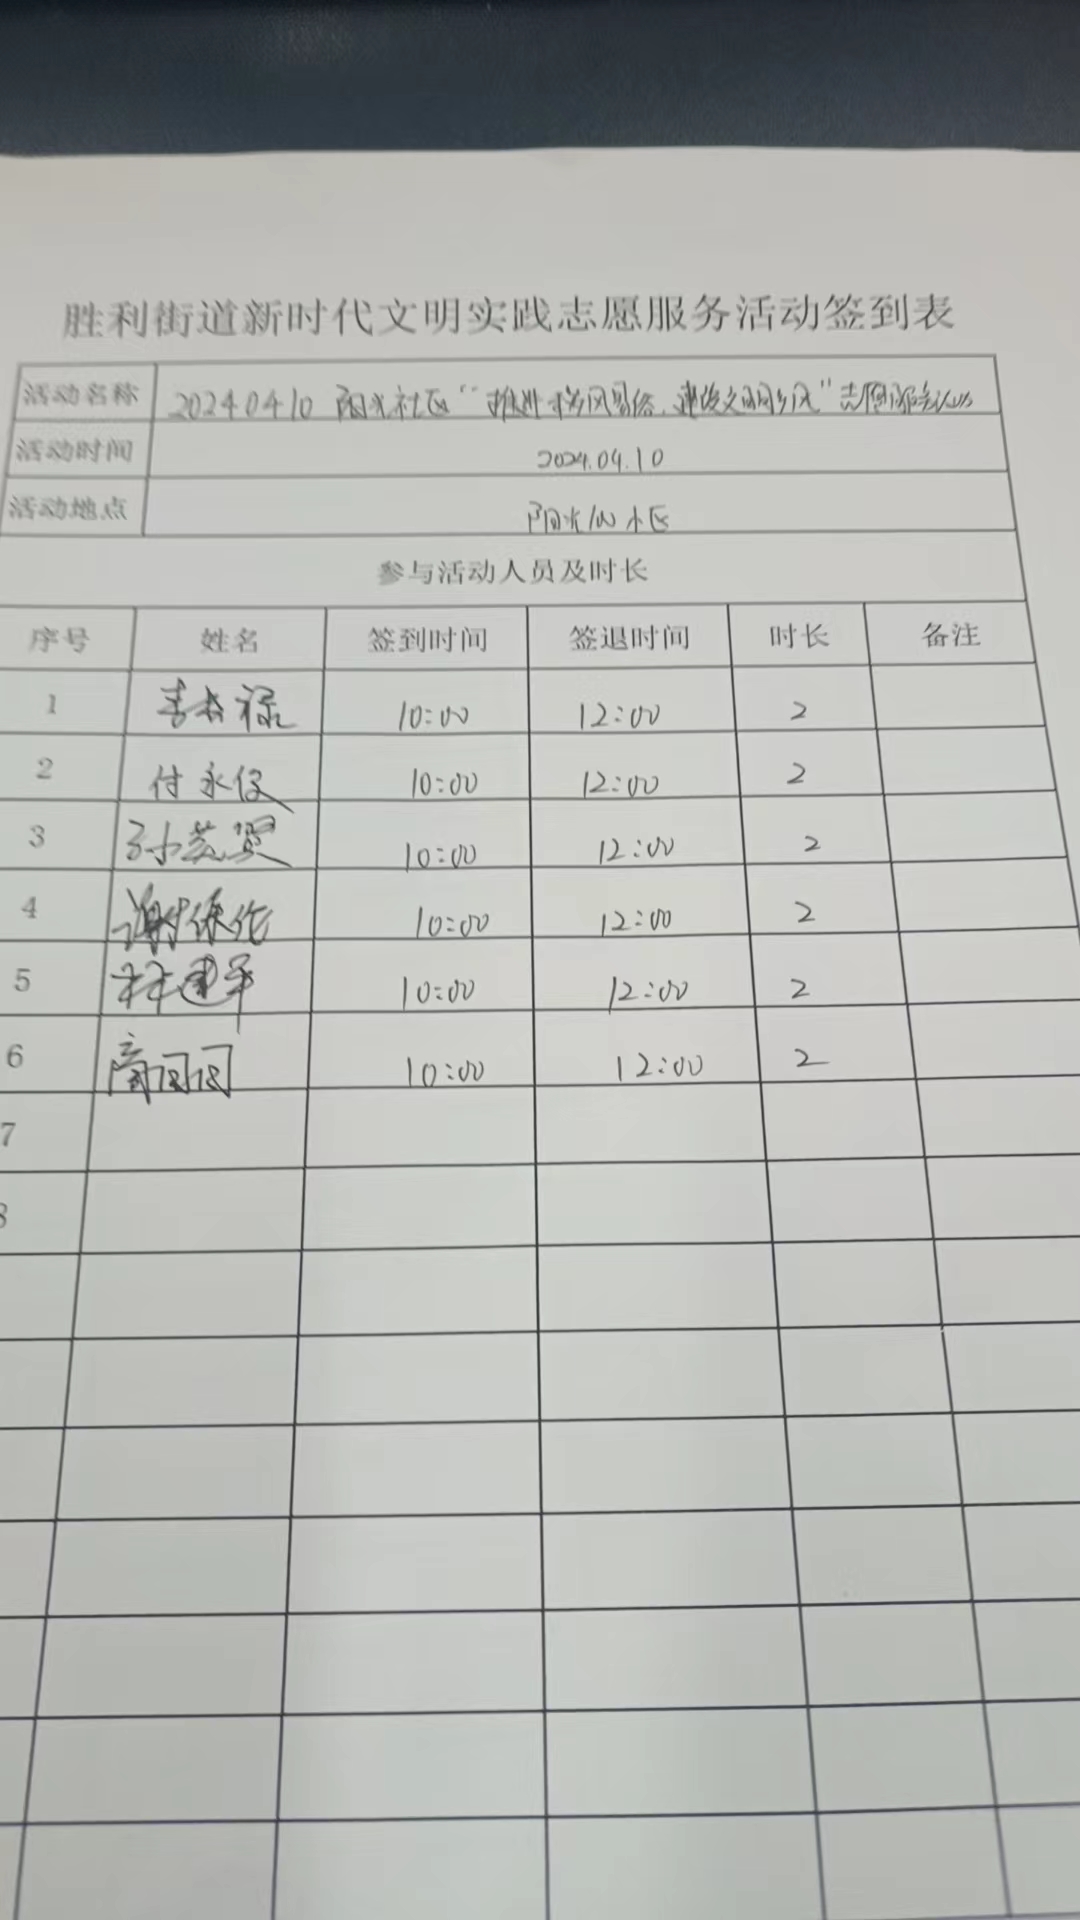 胜利街道新时代文明实践志愿服务活动签到表
活动名称 20240410 阳光社区“推进移风易俗，建设文明乡风”志愿服务活动
活动时间 2024.04.10
活动地点 阳光 小区
参与活动人员及时长
序号 姓名 签到时间 签退时间 时长 备注
1 10:00 12:00 2
2 付永俊 10:00 12:00 2
3 10:00 12:00 2
4 谢 10:00 12:00 2
5 林建平 10:00 12:00 2
6 10:00 12:00 2
7
8